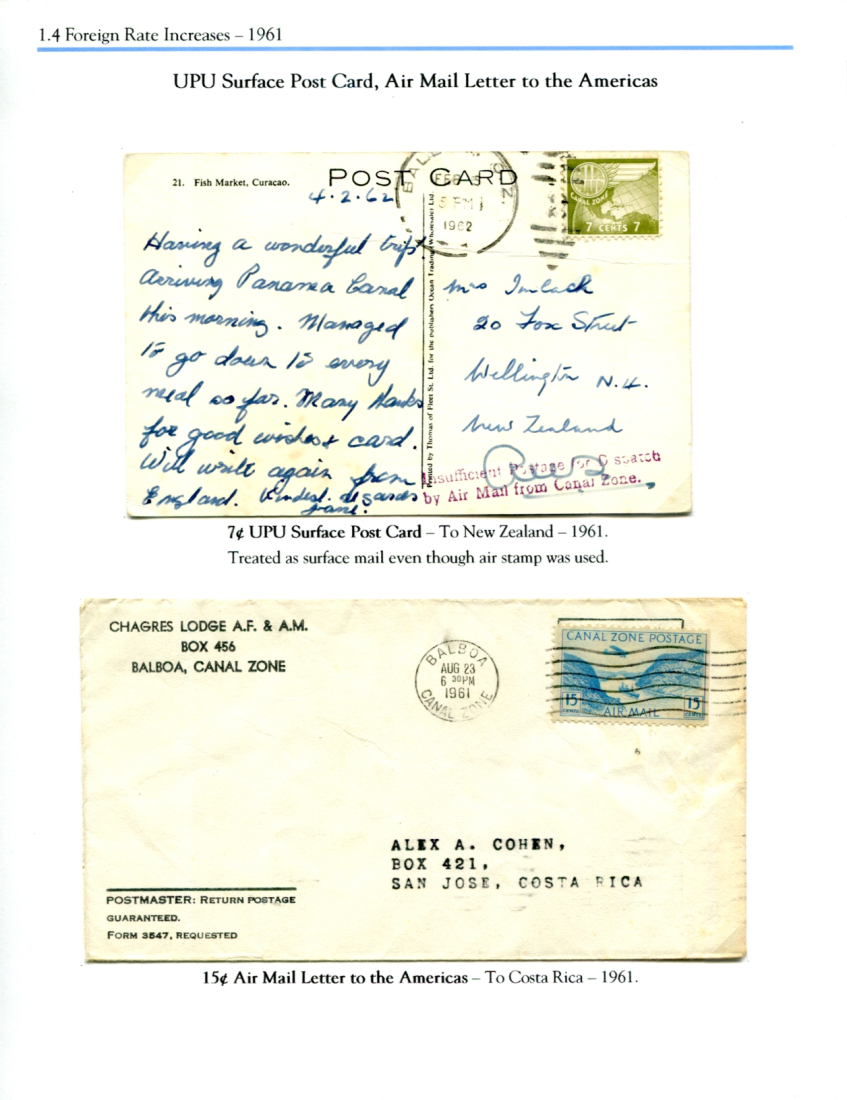 1.4 Foreign Rate Increases – 1961
UPU Surface Post Card, Air Mail Letter to the Americas
21. Fish Market, Curacao.
POST CARD
4.2.62
FEB
5 PM
1962
CANAL ZONE
7 CENTS 7
Having a wonderful trip
arriving Panama Canal
this morning. Managed
to go down to every
meal so far. Many thanks
for good wishes & card.
Will write again from
England. Kindest regards
Printed by Thomas of Fleet St. Ltd. for the publishers Ocean Trading Wholesaler Ltd.
Mrs Imlach
20 Fox Street
Wellington N.4.
New Zealand
Insufficient Postage for Dispatch
by Air Mail from Canal Zone.
7¢ UPU Surface Post Card – To New Zealand – 1961.
Treated as surface mail even though air stamp was used.
CHAGRES LODGE A.F. & A.M.
BOX 456
BALBOA, CANAL ZONE
BALBOA
AUG 23
6 30PM
1961
CANAL ZONE
CANAL ZONE POSTAGE
15 CENTS
AIR MAIL
15 CENTS
ALEX A. COHEN,
BOX 421,
SAN JOSE, COSTA RICA
POSTMASTER: RETURN POSTAGE
GUARANTEED.
FORM 3547, REQUESTED
15¢ Air Mail Letter to the Americas – To Costa Rica – 1961.